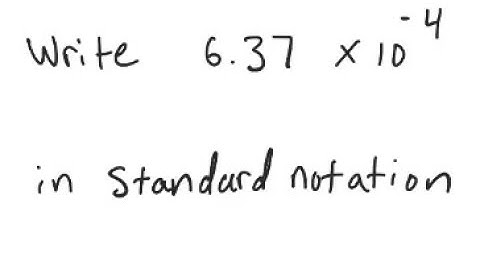 Write 6.37 × 10⁻⁴
in standard notation